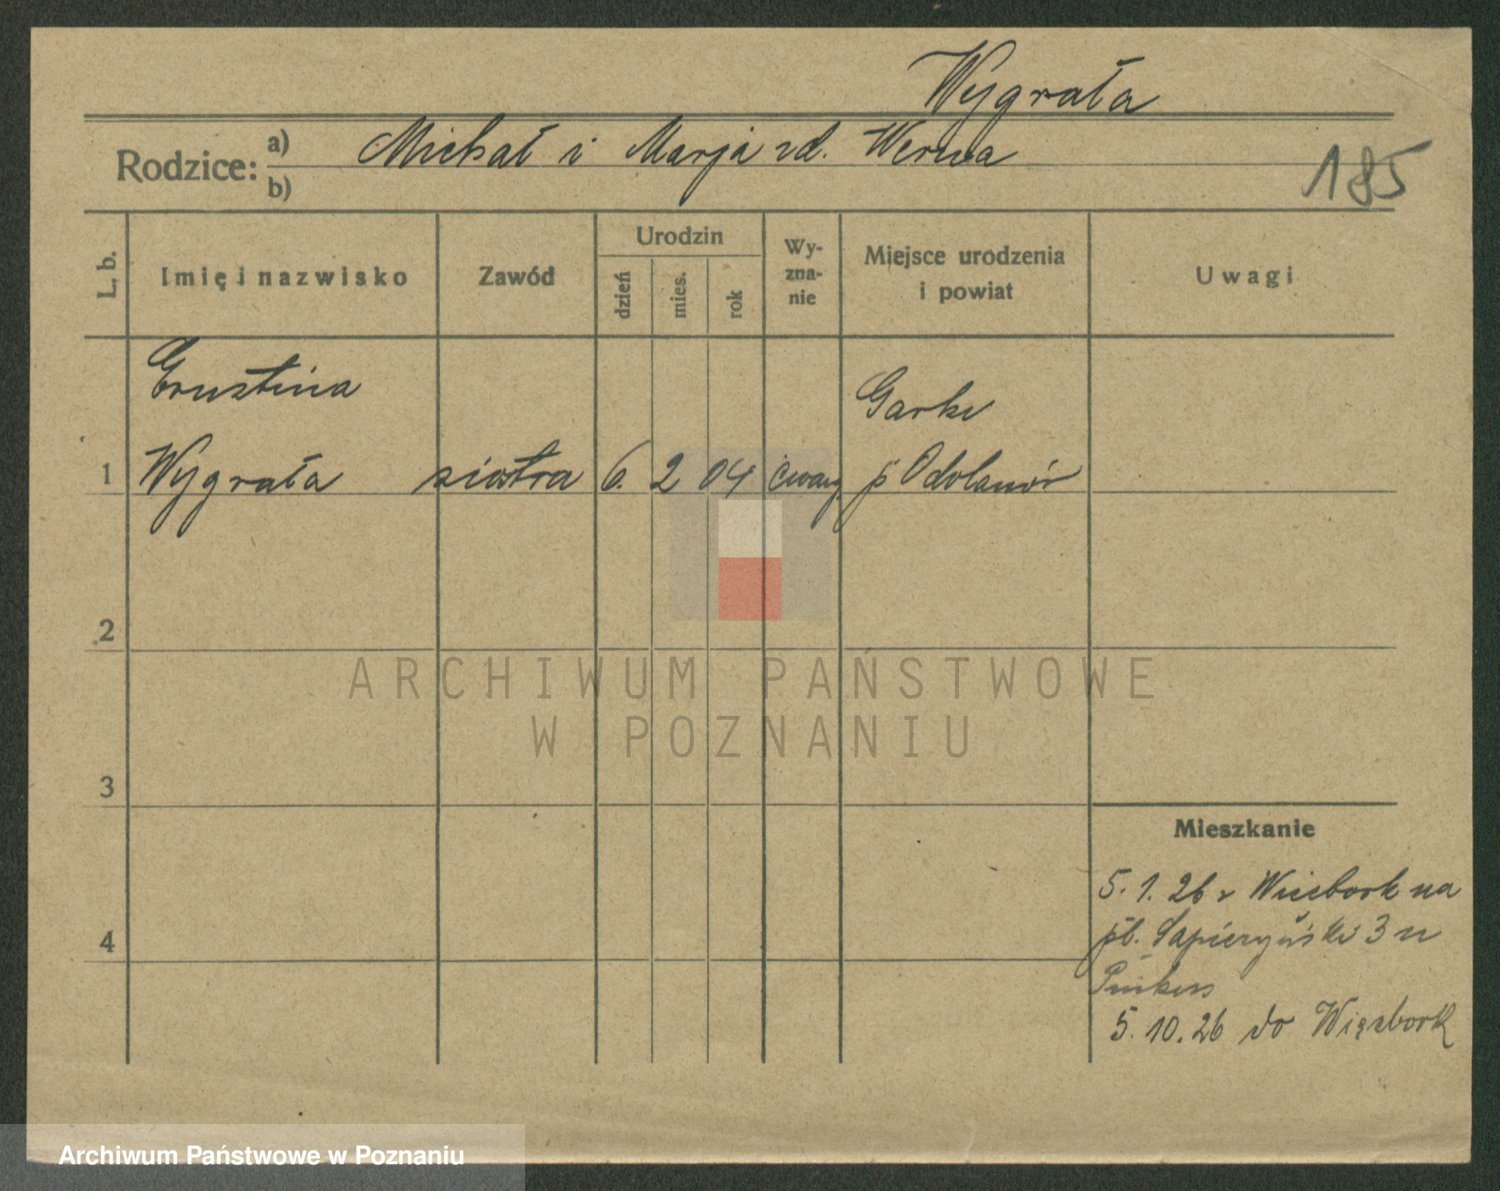 Wygrała
Rodzice: a) Michał i Marja zd. Werna
b)
185
L. b.
Imię i nazwisko
Zawód
Urodzin
dzień
mies.
rok
Wy-
zna-
nie
Miejsce urodzenia
i powiat
Uwagi
Ernstina
Garki
1 Wygrała siostra 6. 2 04 ewang p Odolanów
2
ARCHIWUM PAŃSTWOWE
W POZNANIU
3
Mieszkanie
5. 1. 26 z Więcbork na
4
pl. Sapieżyński 3 u
5. 10. 26 do Więcbork
Archiwum Państwowe w Poznaniu